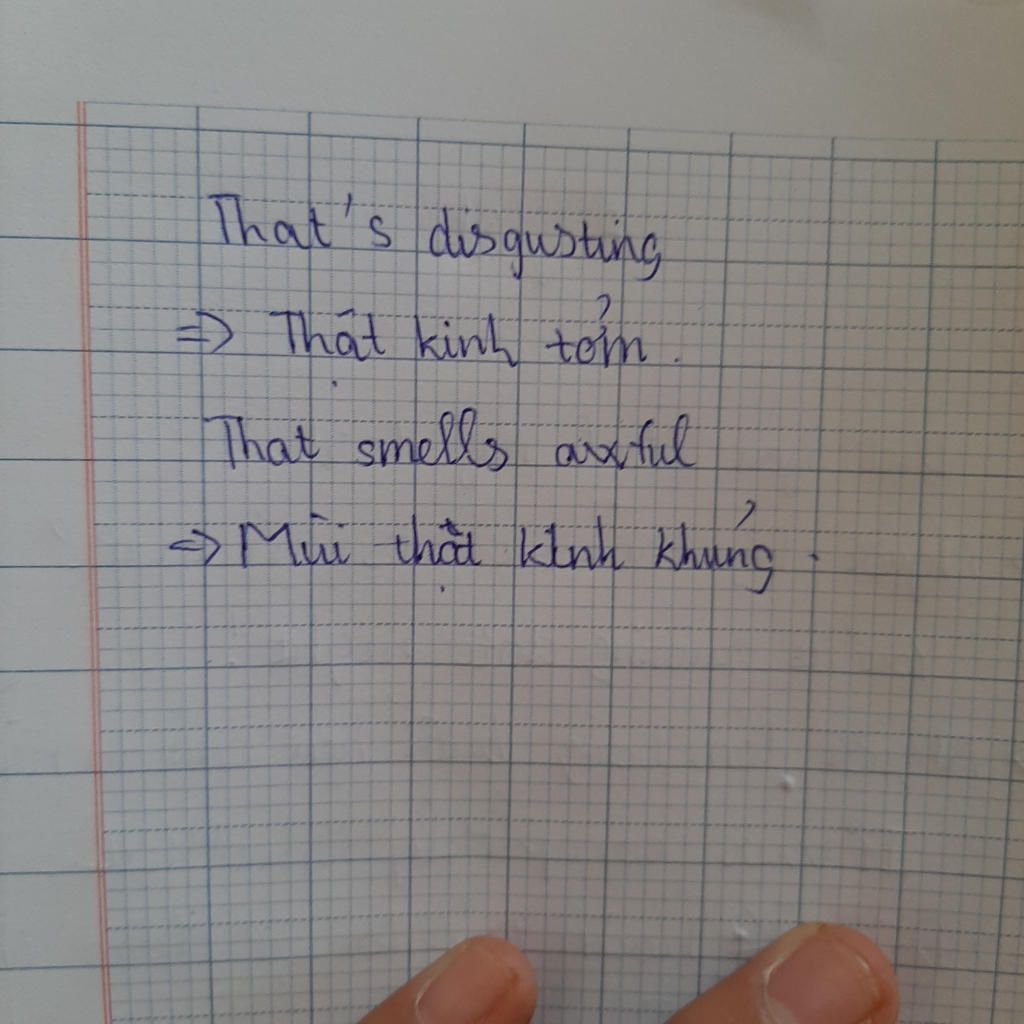 That's disgusting
=> Thật kinh tởm.
That smells awful
=> Mùi thật kinh khủng.